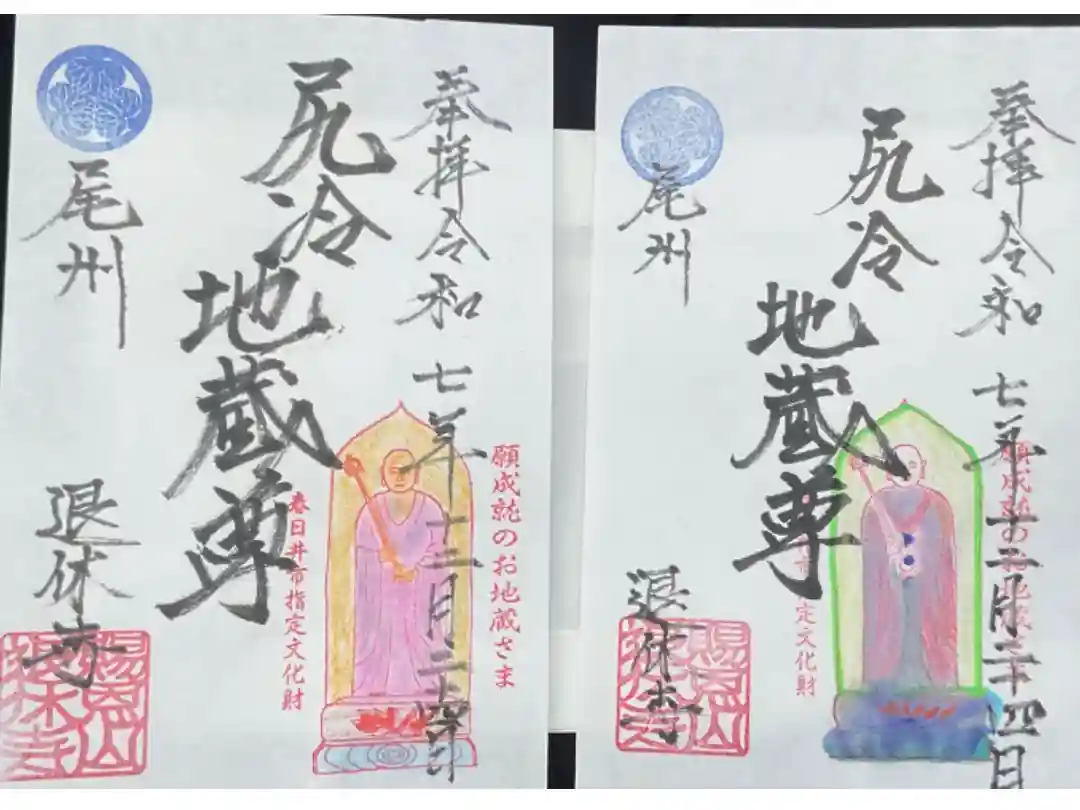 奉拝 令和七年十二月二十四日
尻冷地蔵尊
願成就のお地蔵さま
春日井市指定文化財
尾州 退休寺
奉拝 令和七年十二月二十四日
尻冷地蔵尊
願成就のお地蔵
市 定文化財
尾州 退休寺